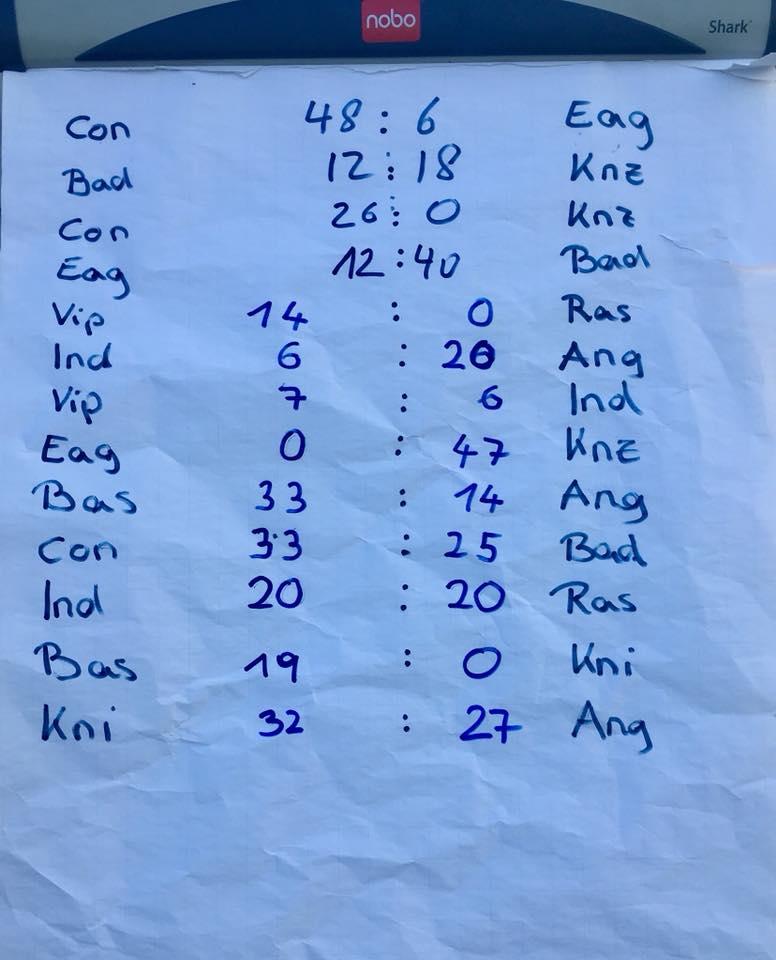 nobo Shark
Con 48 : 6 Eag
Bad 12 : 18 Knz
Con 26 : 0 Knz
Eag 12 : 40 Bad
Vip 14 : 0 Ras
Ind 6 : 20 Ang
Vip 7 : 6 Ind
Eag 0 : 47 Knz
Bas 33 : 14 Ang
Con 33 : 25 Bad
Ind 20 : 20 Ras
Bas 19 : 0 Kni
Kni 32 : 27 Ang